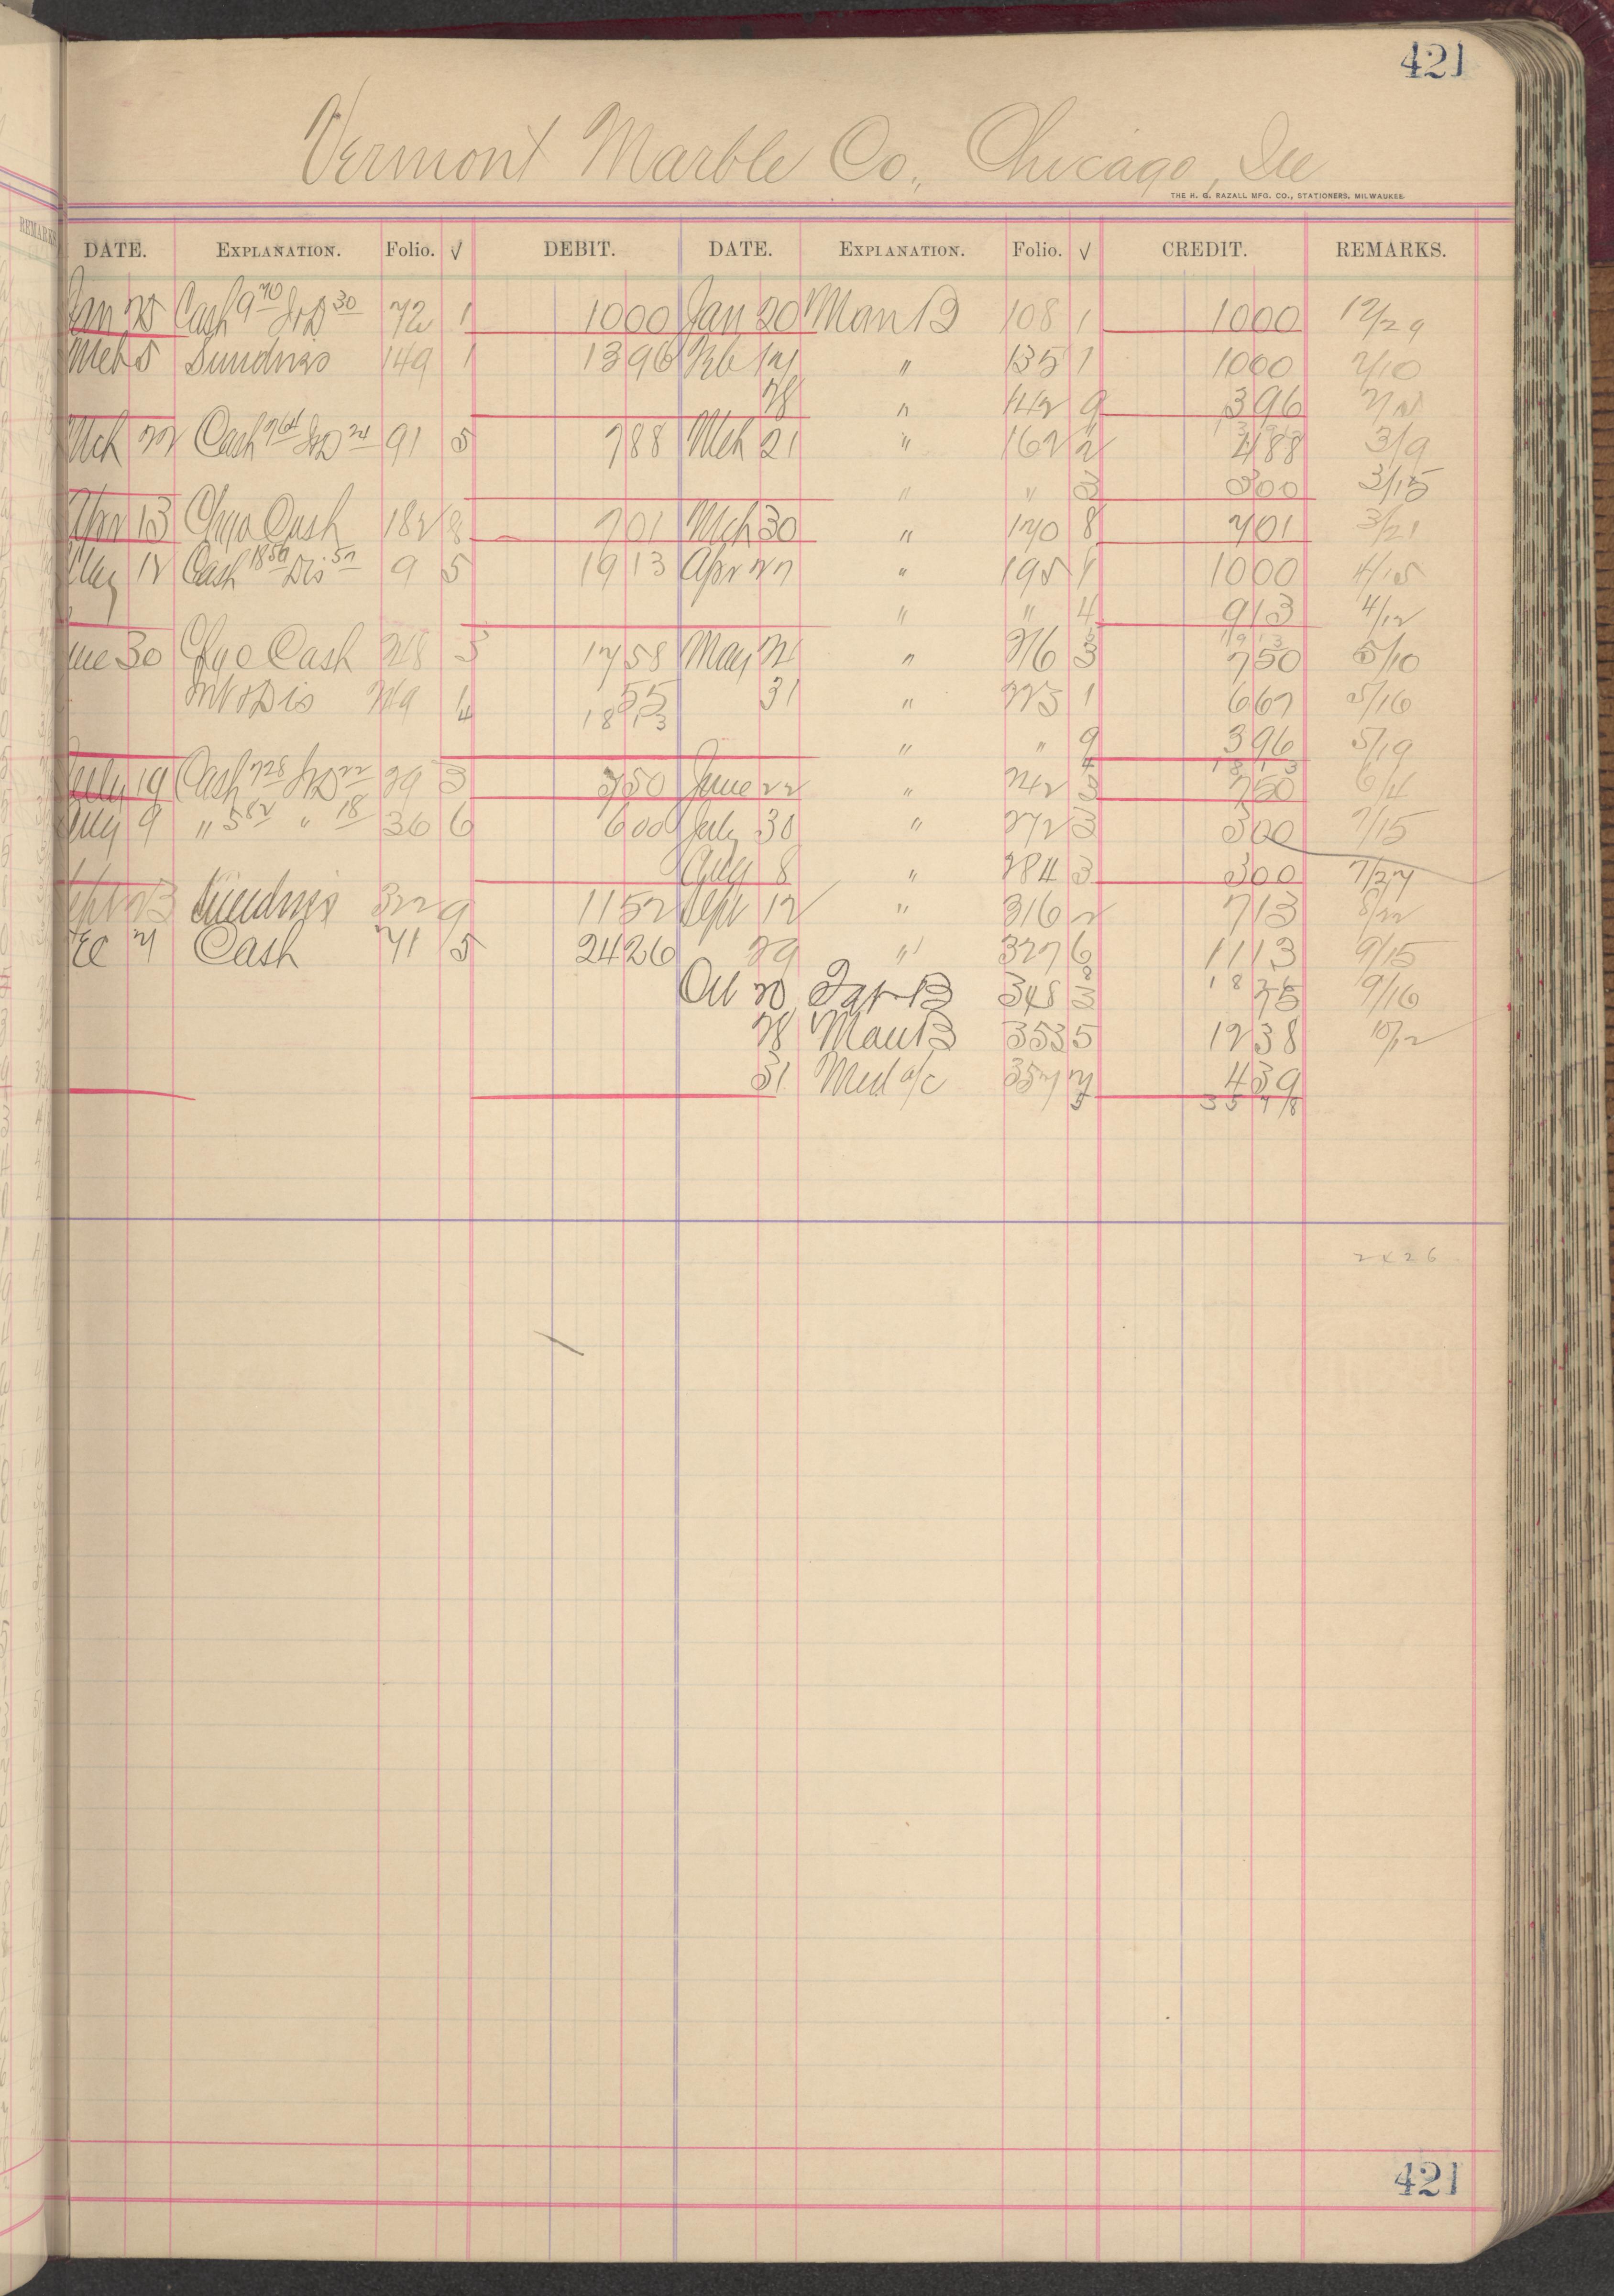 421
Vermont Marble Co., Chicago, Ill
THE H. G. RAZALL MFG. CO., STATIONERS, MILWAUKEE
DATE. EXPLANATION. Folio. √ DEBIT. DATE. EXPLANATION. Folio. √ CREDIT. REMARKS.
Jan 25 Cash 970 30 72 1 1000 Jan 20 Man B 108 1 1000 12/29
Mch 5 Sundries 149 1 1396 Feb 14 " 135 1 1000 2/10
28 " 142 9 396
Mch 22 Cash 764 24 91 5 788 Mch 21 " 162 2 488 3/9
" " 3 300 3/15
Apr 13 Chgo Cash 182 8 701 Mch 30 " 170 8 701 3/21
May 12 Cash 1856 Dis 57 9 5 1913 Apr 27 " 195 1 1000 4/15
" " 4 913 4/12
1913
une 30 Chgo Cash 248 3 1758 May 21 " 216 3 750 5/10
Int & Dis 249 1 55 31 " 223 1 667 5/16
4 1813
" " 9 396 5/19
1813
July 19 Cash 728 22 29 3 750 June 22 " 242 3 750 6/4
Aug 9 " 582 " 18 36 6 600 July 30 " 272 3 300 7/15
Aug 8 " 284 3 300 7/27
Sept 23 Sundries 322 9 1152 Sept 12 " 316 2 713 8/22
ec 21 Cash 71 5 2426 29 " 327 6 1113 9/15
Oct 20 B 348 3 75 9/16
28 Man B 353 5 1238 10/12
31 Mdl a/c 357 7 439
5 3578
2426
421